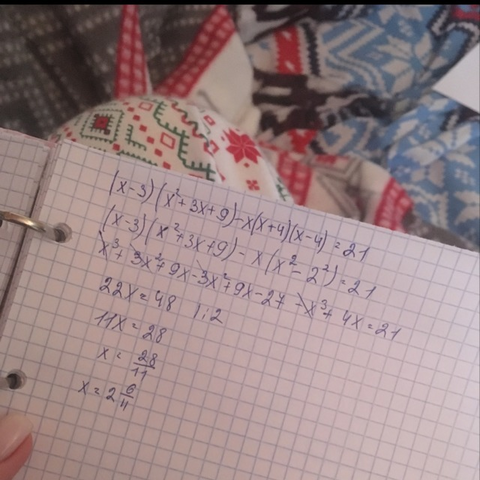 (x-3)(x²+3x+9)-x(x+4)(x-4)=21
(x-3)(x²+3x+9)-x(x²-2²)=21
x³+3x²+9x-3x²+9x-27-x³+4x=21
22x=48 |:2
11x=28
x=28/11
x=2 6/11